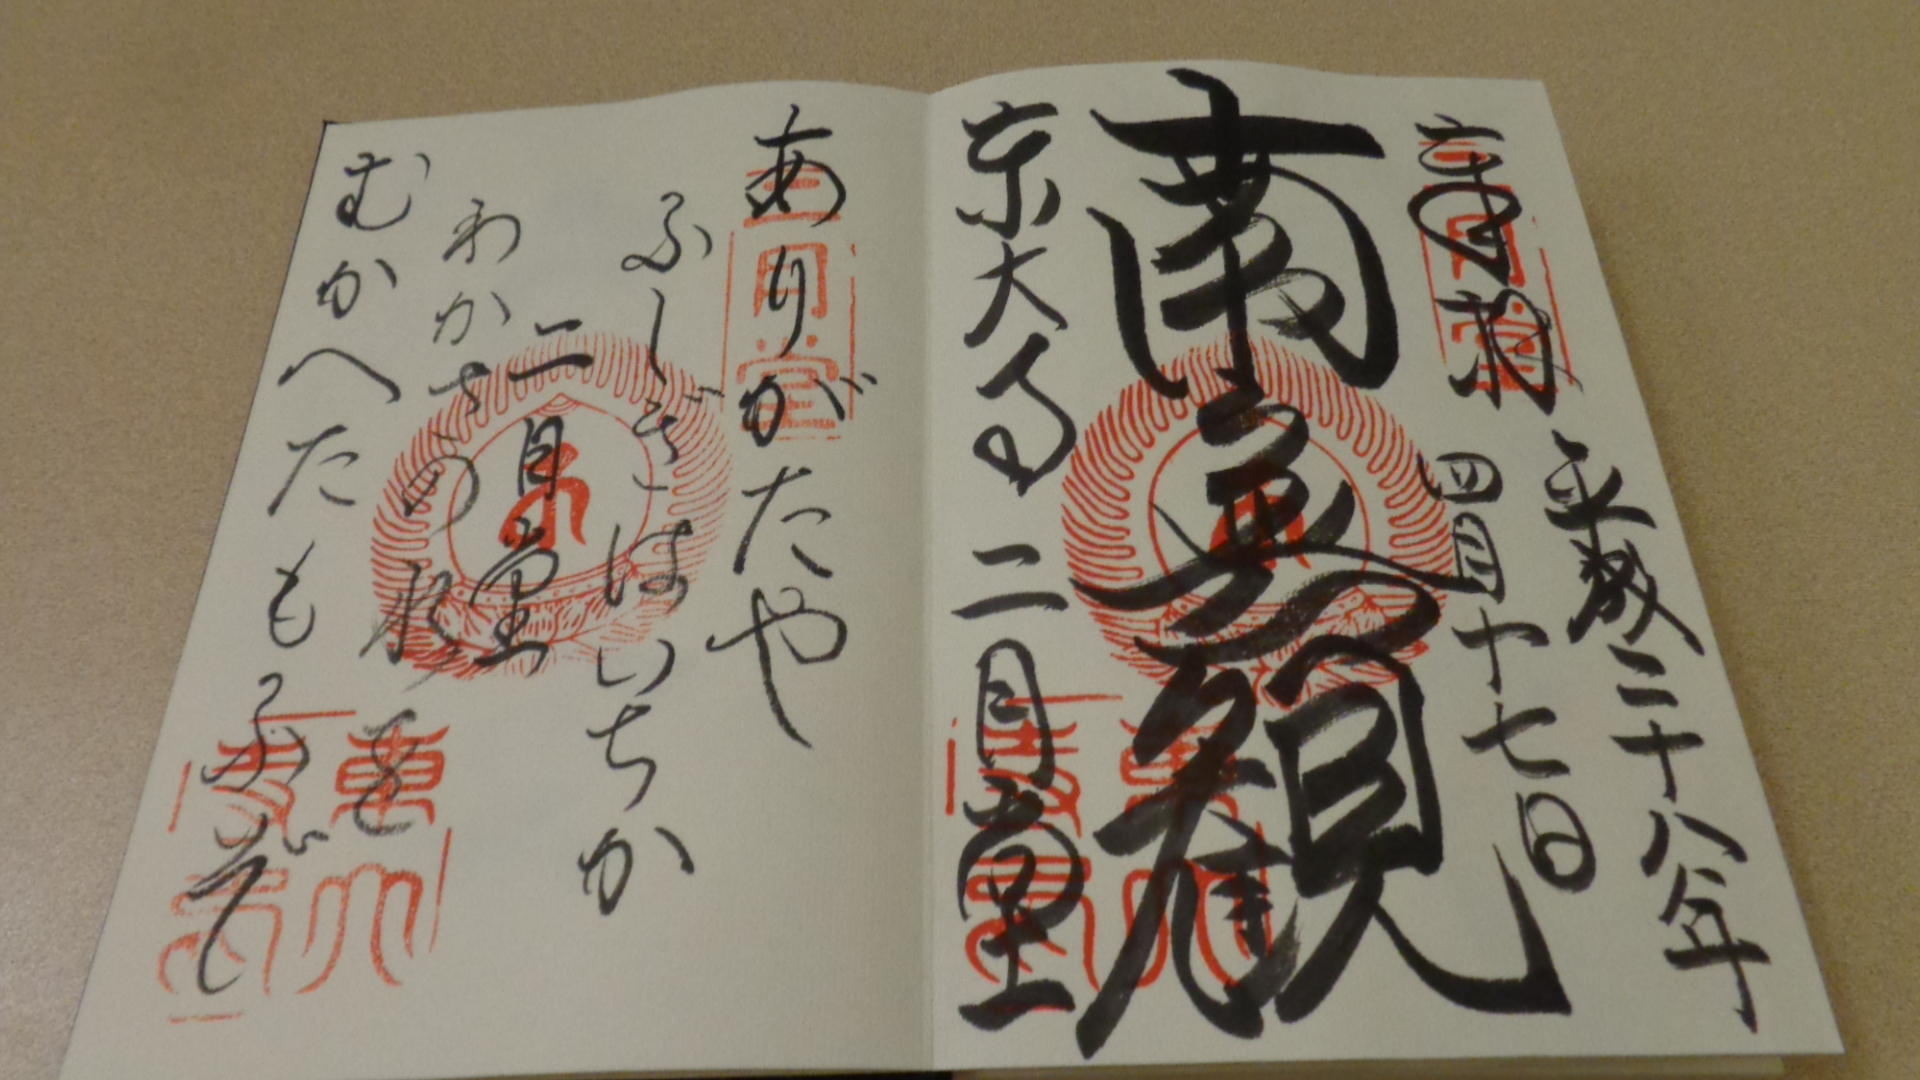 奉拝
平成二十八年
四月十七日
南無観
東大寺 二月堂
二月堂
ありがたや
ふしぎはいちか
二月堂
わかさの水を
むかへたもふぞ
二月堂